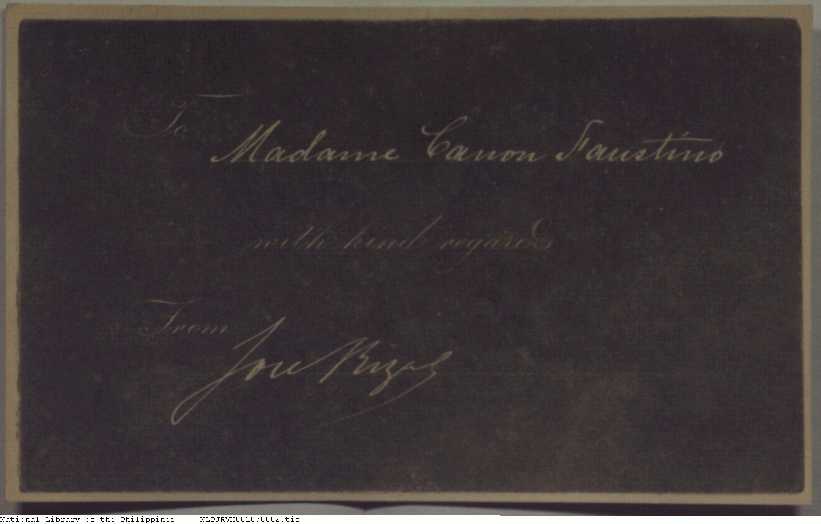 To
Madame Canon Faustino
with kind regards
From
Jose Rizal
National Library of the Philippines